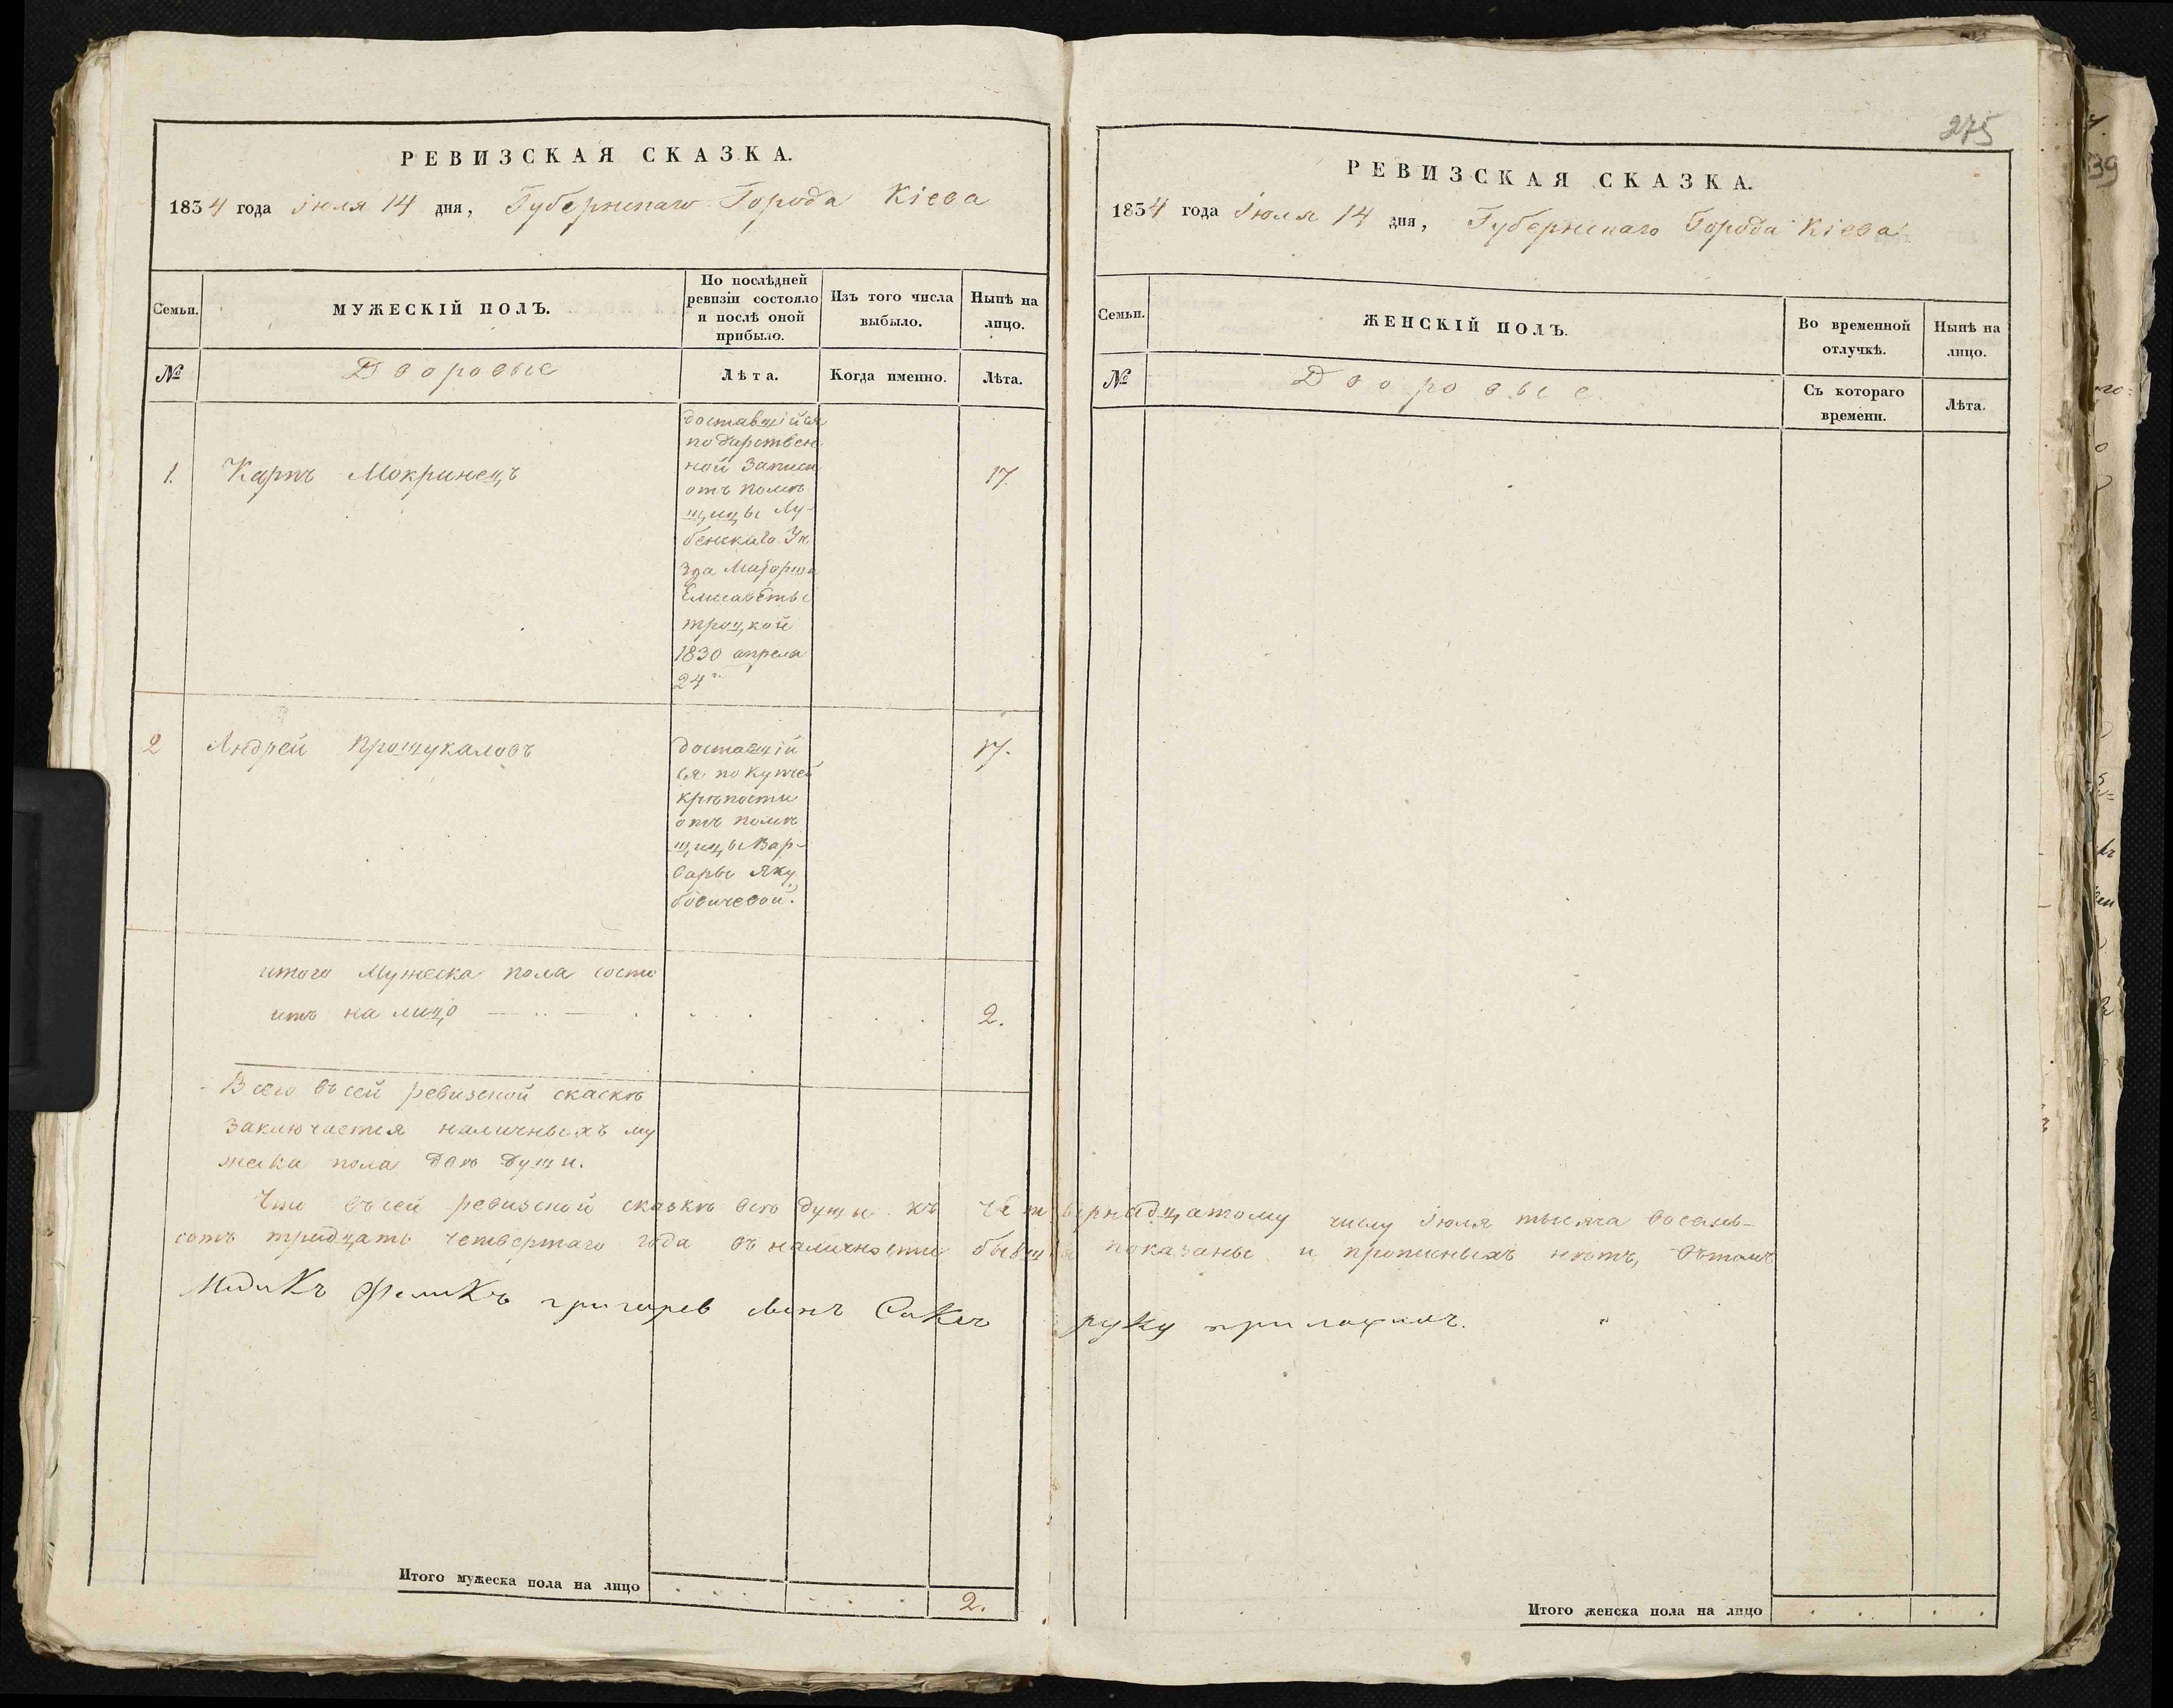 РЕВИЗСКАЯ СКАЗКА.
1834 года Іюля 14 дня, Губернскаго Города Кіева
Семьи.
МУЖЕСКІЙ ПОЛЪ.
По послѣдней
ревизіи состояло
и послѣ оной
прибыло.
Изъ того числа
выбыло.
Нынѣ на
лицо.
№
Дворовые
Лѣта.
Когда именно.
Лѣта.
1. Карпъ Мокринецъ
доставшійся
по дарствен
ной записи
отъ помѣ
щицы Лу-
бенскаго Уѣ
зда Маіорши
Елисаветы
троцкой
1830 апреля
24го
17.
2 Андрей Прощукаловъ
доставшій
ся по купчей
крѣпости
отъ помѣ
щицы Вар-
вары Яку
бовичевой.
17.
итого Мужеска пола состо
итъ на лицо
2.
Всего въ сей ревизской скаскѣ
заключается наличныхъ му
жеска пола двѣ души.
Что въ сей ревизской сказкѣ всѣ души къ четырнадцатому числу Іюля тысяча восемь-
сотъ тридцать четвертаго года въ наличности бывшія показаны и прописныхъ нѣтъ, въ томъ
руку приложилъ.
Итого мужеска пола на лицо
2.
275
РЕВИЗСКАЯ СКАЗКА.
1834 года Іюля 14 дня, Губернскаго Города Кіева
Семьи.
ЖЕНСКІЙ ПОЛЪ.
Во временной
отлучкѣ.
Нынѣ на
лицо.
№
Дворовые
Съ котораго
времени.
Лѣта.
Итого женска пола на лицо
39